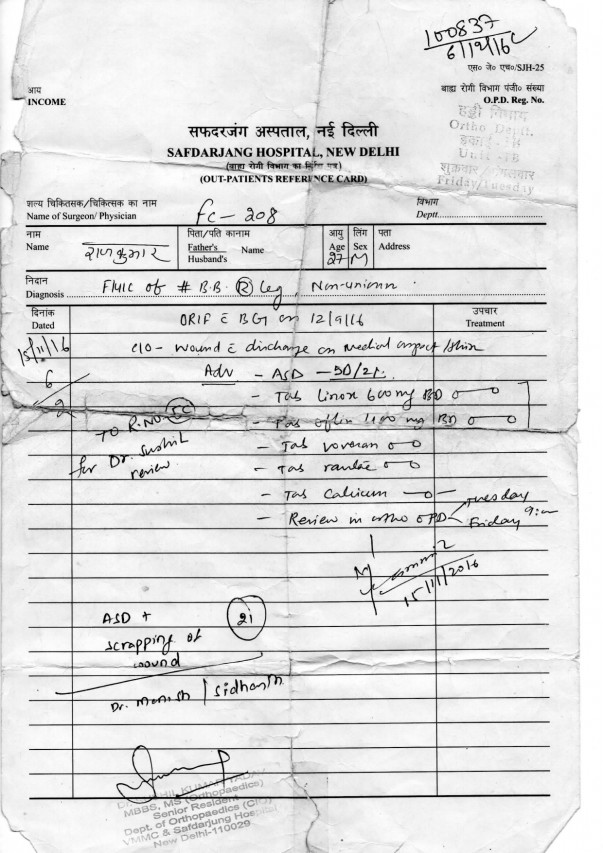 100837
6/12/16
एस० जे० एच०/SJH-25
आय
INCOME
बाह्य रोगी विभाग पंजी० संख्या
O.P.D. Reg. No.
हड्डी विभाग
Ortho Deptt.
इकाई-
Unit-IB
शुक्रवार/मंगलवार
Friday/Tuesday
सफदरजंग अस्पताल, नई दिल्ली
SAFDARJANG HOSPITAL, NEW DELHI
(बाह्य रोगी विभाग का निर्देश पत्र)
(OUT-PATIENTS REFERENCE CARD)
शल्य चिकित्सक/चिकित्सक का नाम
Name of Surgeon/ Physician
FC - 208
विभाग
Deptt.
नाम
Name
राजकुमार
पिता/पति कानाम
Father's
Husband's
Name
आयु
Age
27
लिंग
Sex
M
पता
Address
निदान
Diagnosis
# B.B. (R) Leg, Non-union
दिनांक
Dated
ORIF c BGT on 12/9/16
उपचार
Treatment
15/11/16
C/O - Wound c discharge on medial aspect /shin
Adv - ASD - SD/21.
- Tab Linox 600mg BD
- Tab oflin BD
- Tab voveran
- Tab rantac
- Tab Calcium
- Review in ortho OPD
Tuesday
Friday
TO R.NO
for Dr. Sushil
review
15/11/2016
ASD +
scrapping of
wound
21
Dr. Manish / Sidharth
KUMAR YADAV
MBBS, MS (Orthopaedics)
Senior Resident
Dept. of Orthopaedics (CIO)
VMMC & Safdarjung Hospital
New Delhi-110029